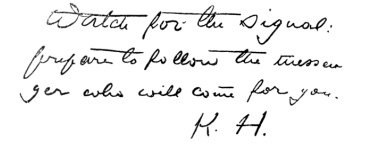 Watch for the signal:
prepare to follow the messen
ger who will come for you.
K. H.